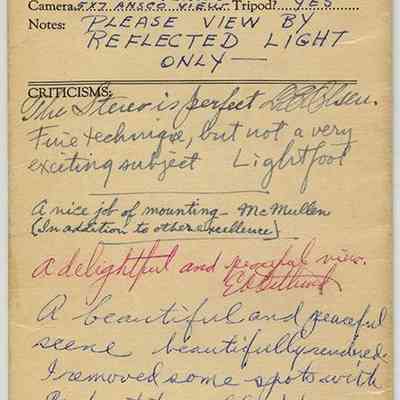 Camera 5X7 ANSCO VIEW Tripod? YES
Notes: PLEASE VIEW BY
REFLECTED LIGHT
ONLY—
CRITICISMS:
The Stereo is perfect L.B. Olsen.
Fine technique, but not a very
exciting subject Lightfoot
A nice job of mounting - McMullen
(In addition to other excellence)
A delightful and peaceful view.
A beautiful and peaceful
scene beautifully rendered.
I removed some spots with